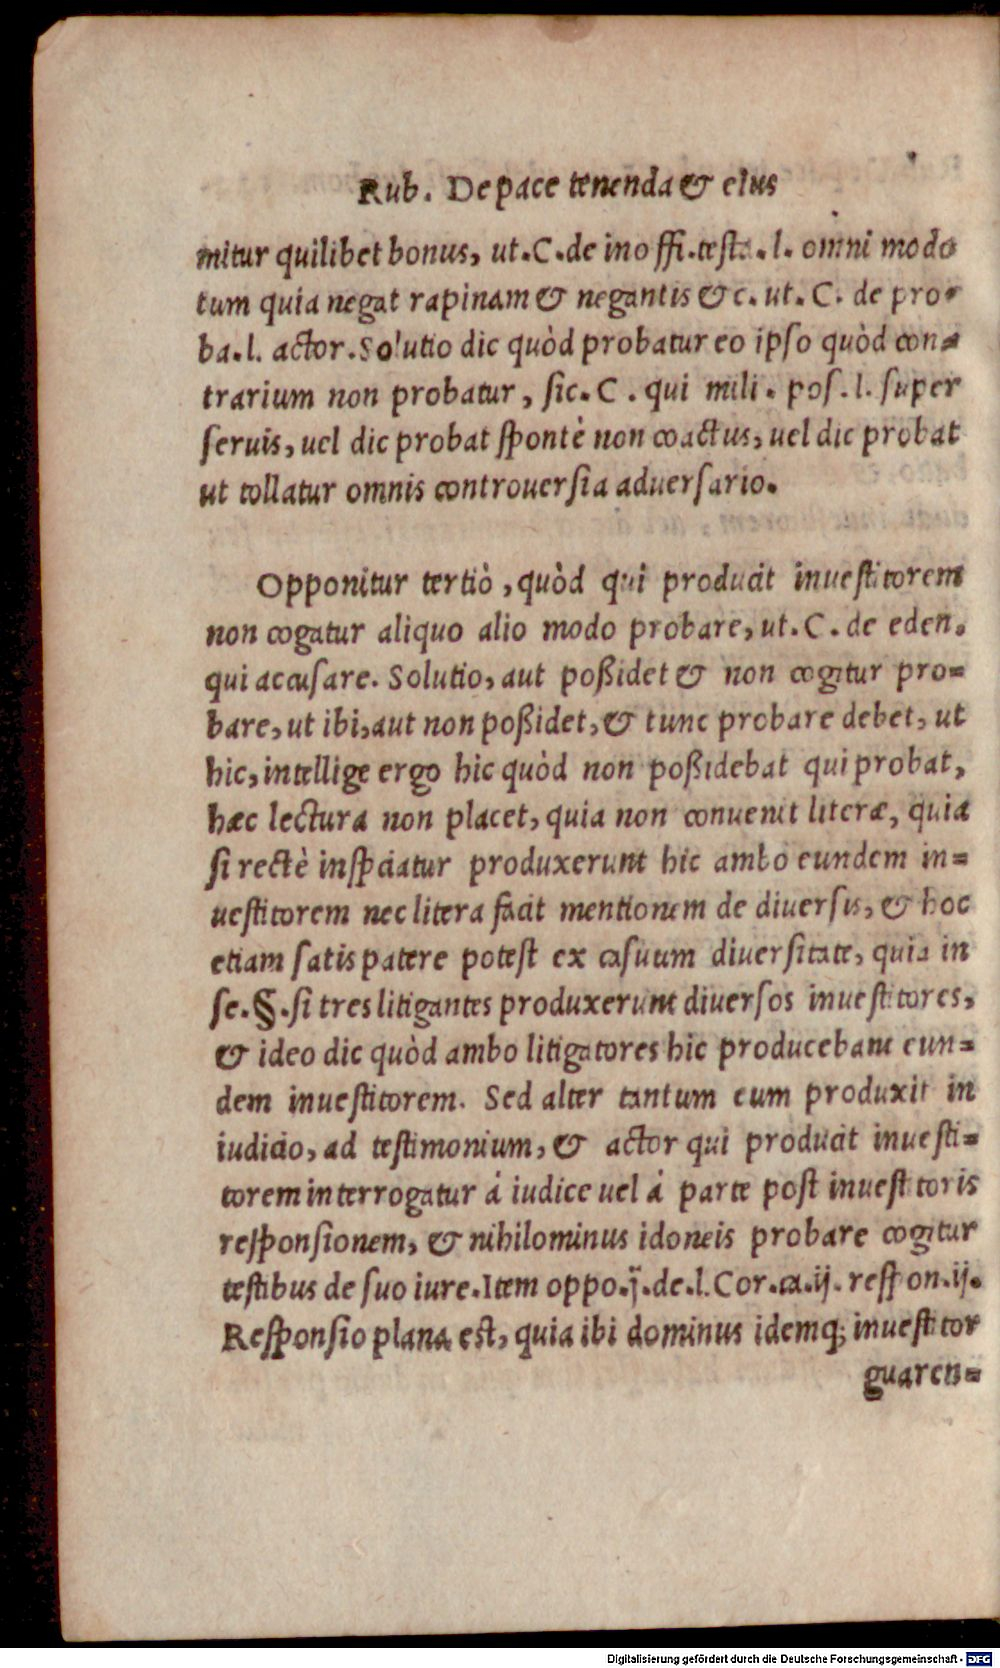 Rub. De pace tenenda & eius
mitur quilibet bonus, ut. C. de inoffi. test. l. omni modo
tum quia negat rapinam & negantis &c. ut. C. de pro-
ba. l. actor. Solutio dic quòd probatur eo ipso quòd con-
trarium non probatur, sic. C. qui mili. pos. l. super
seruis, uel dic probat spontè non coactus, uel dic probat
ut tollatur omnis controuersia aduersario.
Opponitur tertiò, quòd qui producit inuestitorem
non cogatur aliquo alio modo probare, ut. C. de eden.
qui accusare. Solutio, aut poßidet & non cogitur pro-
bare, ut ibi, aut non poßidet, & tunc probare debet, ut
hic, intellige ergo hic quòd non poßidebat qui probat,
hæc lectura non placet, quia non conuenit literæ, quia
si rectè inspciatur produxerunt hic ambo eundem in-
uestitorem nec litera facit mentionem de diuersis, & hoc
etiam satis patere potest ex casuum diuersitate, quia in
se. §. si tres litigantes produxerunt diuersos inuestitores,
& ideo dic quòd ambo litigatores hic producebant eun-
dem inuestitorem. Sed alter tantum eum produxit in
iudicio, ad testimonium, & actor qui producit inuesti-
torem interrogatur á iudice uel á parte post inuestitoris
responsionem, & nihilominus idoneis probare cogitur
testibus de suo iure. Item oppo. j̈. de. l. Cor. ca. ij. respon. ij.
Responsio plana est, quia ibi dominus idemq; inuestitor
guaren-
Digitalisierung gefördert durch die Deutsche Forschungsgemeinschaft - DFG